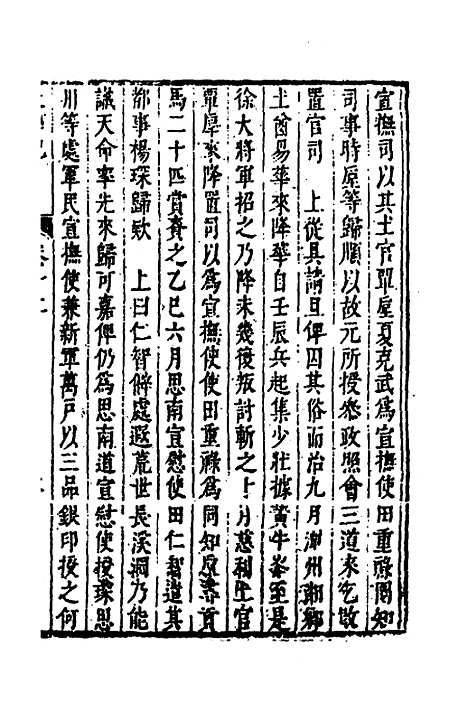 宣撫司以其土官覃垕夏克武為宣撫使田重祿同知
司事時垕等歸順以故元所授叅政照會三道來乞改
置官司　上從其請且俾因其俗而治九月潮州
土酋易華來降華自壬辰兵起集少壯據黄牛峯至是
徐大將軍招之乃降未幾復叛討斬之十月慈利土官
覃垕來降置司以為宣撫使使田重祿為同知垕貢
馬二十匹賞賚之乙巳六月思南宣慰使田仁智遣其
都事楊琛歸欵　上曰仁智僻處遐荒世長溪洞乃能
識天命率先來歸可嘉俾仍為思南道宣慰使授琛思
州等處軍民宣撫使兼新軍萬戸以三品銀印授之何